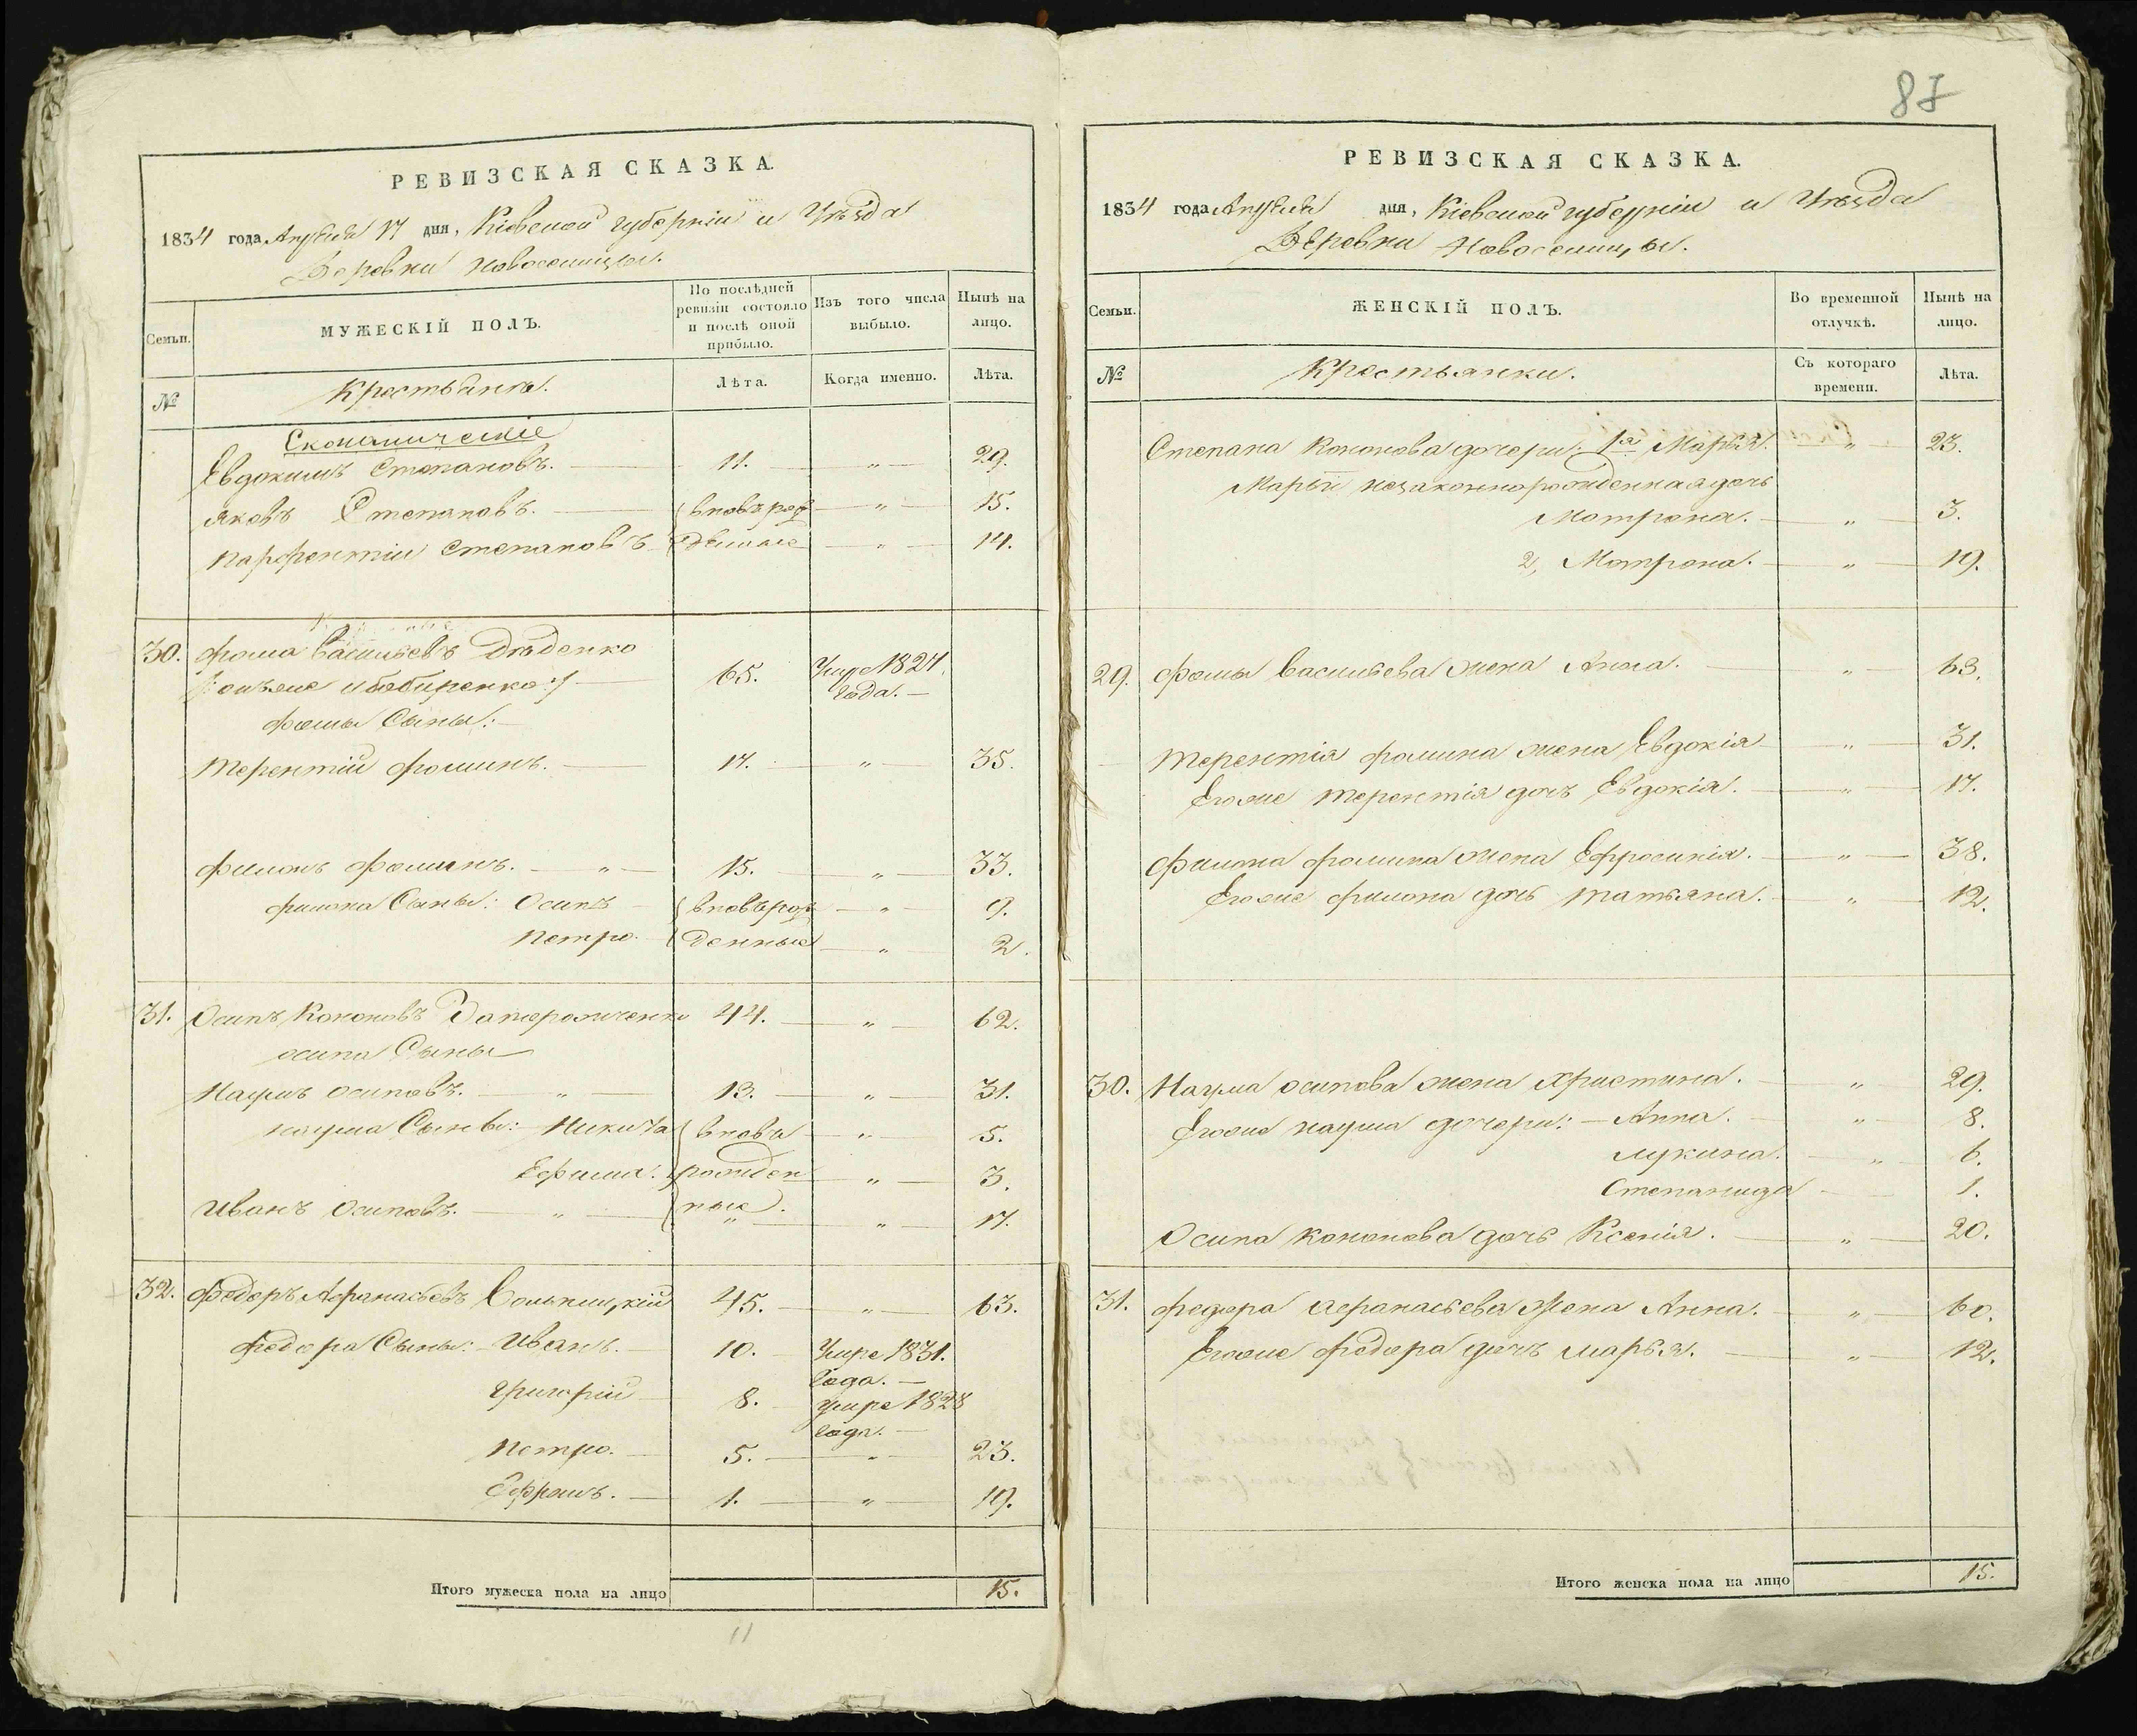 87
РЕВИЗСКАЯ СКАЗКА.
1834 года Апреля 17 дня, Кіевской губерніи и Уѣзда
Деревни Новоселицы.
Семьи.
МУЖЕСКІЙ ПОЛЪ.
По послѣдней ревизіи состояло и послѣ оной прибыло.
Изъ того числа выбыло.
Нынѣ на лицо.
№
Крестьяне.
Лѣта.
Когда именно.
Лѣта.
Економическіе
Евдокимъ Степановъ. 11. " 29.
Яковъ Степановъ. вновьрож " 15.
Парфентій Степановъ " 14.
30. Фома Васильевъ Дѣденко
65. Умре 1824 года.
Фомы Сыны:
Терентій Фоминъ. 17. " 35.
Филонъ Фоминъ. " 15. " 33.
Филона Сыны: Осипъ вновьрож " 9.
Петро. денные " 2.
31. Осипъ Кононовъ 44. " 62.
Осипа Сыны
Наумъ Осиповъ. " 13. " 31.
Наума Сыны: Никита вновь " 5.
Ефимъ. рожден " 3.
Иванъ Осиповъ. " ные. " " 17.
32. Федоръ Афанасьевъ 45. " 63.
Федора Сыны: Иванъ. 10. Умре 1831. года.
Григорій 8. Умре 1828 года.
Петро. 5. " 23.
Ефремъ. 1. " 19.
Итого мужеска пола на лицо 15.
11
РЕВИЗСКАЯ СКАЗКА.
1834 года Апреля дня, Кіевской губерніи и Уѣзда
Деревни Новоселицы.
Семьи.
ЖЕНСКІЙ ПОЛЪ.
Во временной отлучкѣ.
Нынѣ на лицо.
№
Крестьянки.
Съ котораго времени.
Лѣта.
Степана Кононова дочери: 1я Марья. " 23.
Марьи незаконнорожденная дочь
Мотрона. " 3.
2, Мотрона. " 19.
29. Фомы Васильева жена Анна. " 63.
Терентія Фомина жена Евдокія " 31.
Егоже Терентія дочь Евдокія. " 17.
Филона Фомина жена Ефросинія. " 38.
Егоже Филона дочь Татьяна. " 12.
30. Наума Осипова жена Христина. " 29.
Егоже Наума дочери: Анна. " 8.
Лукина. " 6.
Степанида 1.
Осипа Кононова дочь Ксенія. " 20.
31. Федора Афанасьева Жена Анна. " 60.
Егоже Федора дочь Марья. " 12.
Итого женска пола на лицо 15.